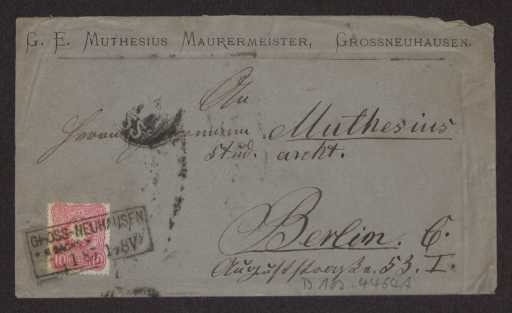 G. E. Muthesius Maurermeister, Grossneuhausen.
An
Herrn Hermann Muthesius
stud. archt.
Berlin. C.
Auguststrasse. 53. I.
GROSS-NEUHAUSEN
10